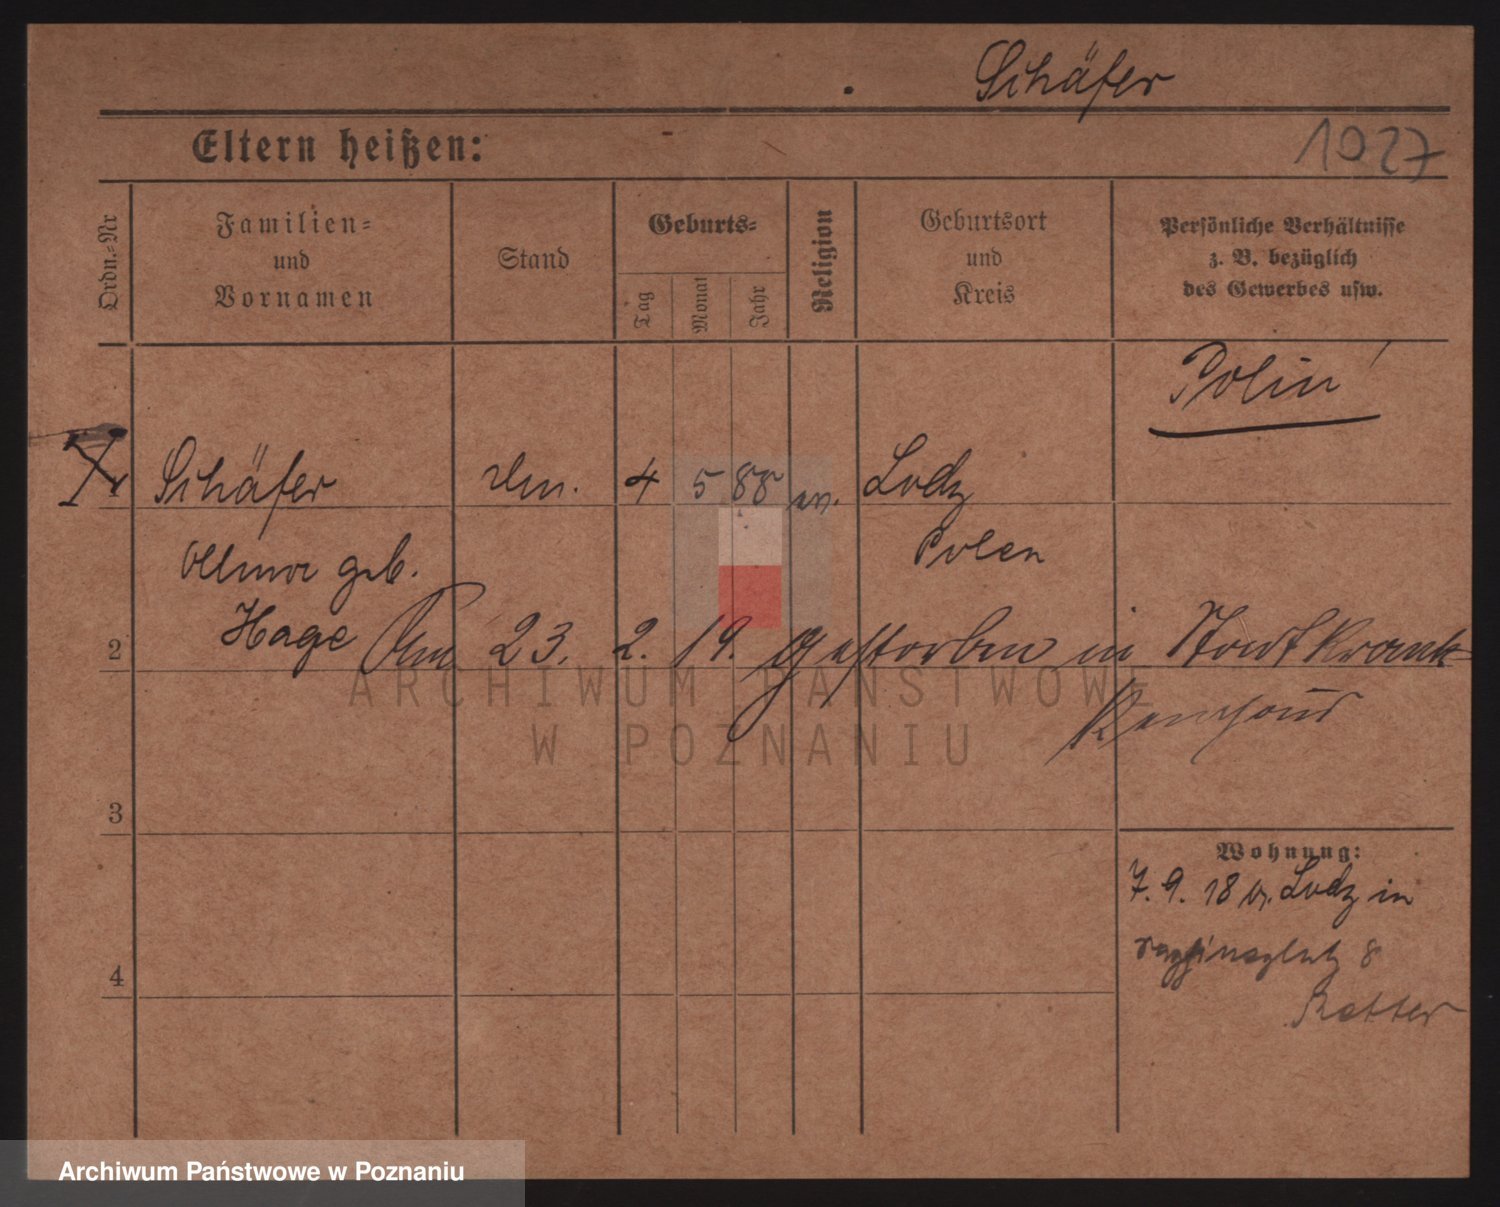 Schäfer
1927
Eltern heißen:
Ordn.=Nr
Familien=
und
Vornamen
Stand
Geburts=
Tag
Monat
Jahr
Religion
Geburtsort
und
Kreis
Persönliche Verhältnisse
z. B. bezüglich
des Gewerbes usw.
Polin
Schäfer 4 5 88 ev. Lodz
geb. Polen
Hage
Am 23. 2. 19. gestorben in Stadtkrank
2
3
4
Wohnung:
7. 9. 18 v. Lodz in
8
ARCHIWUM PAŃSTWOWE
W POZNANIU
Archiwum Państwowe w Poznaniu